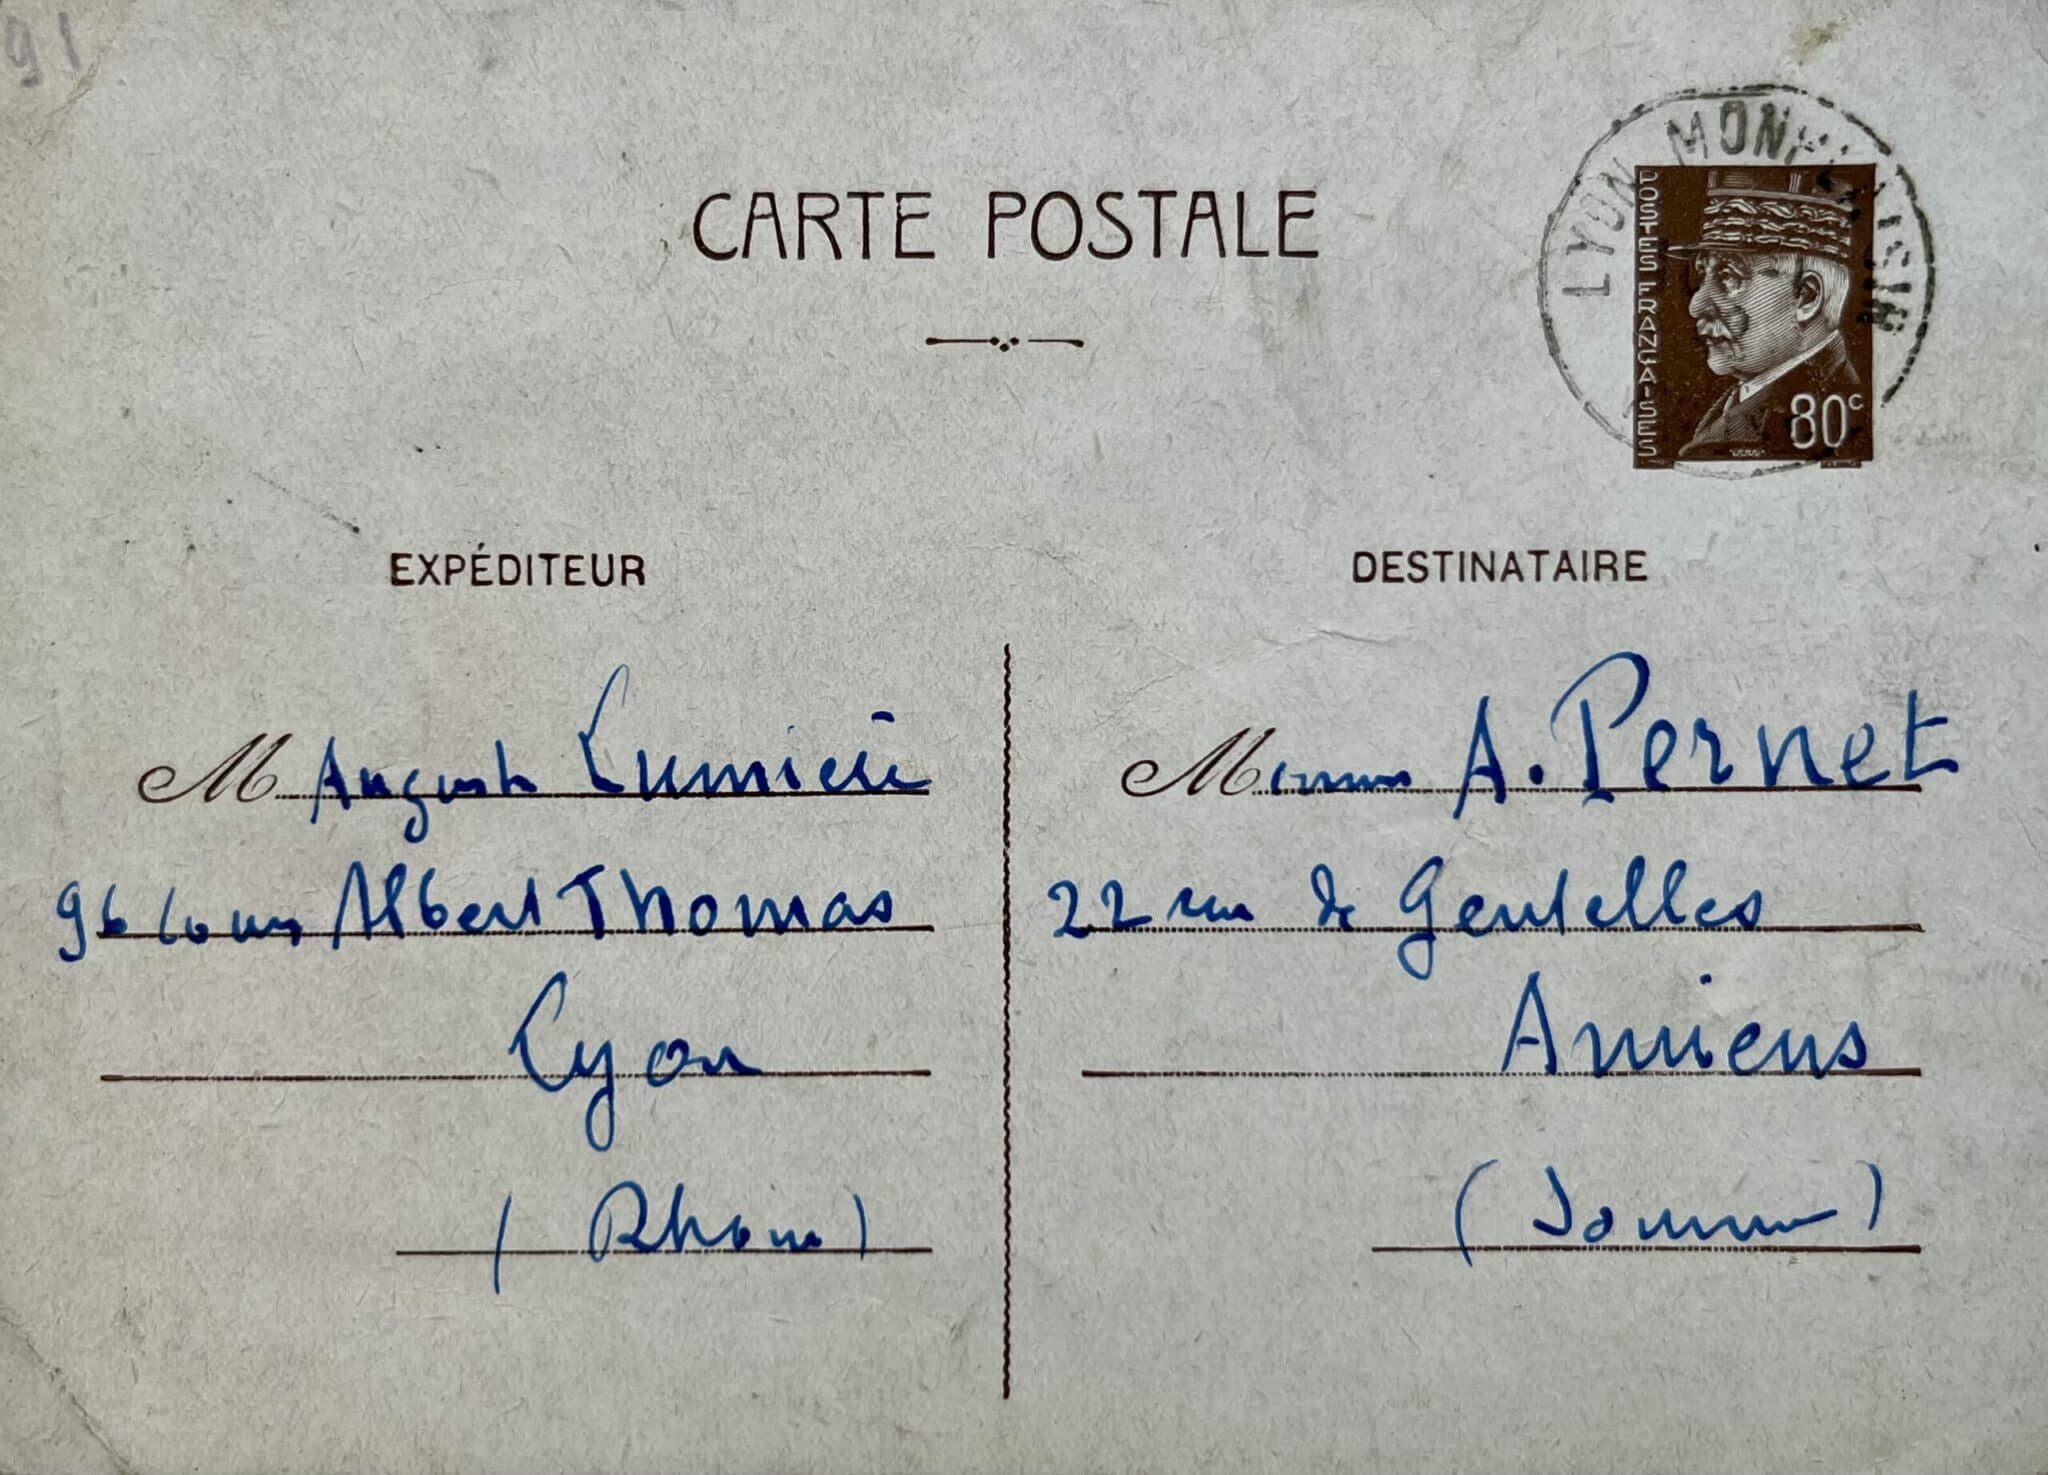 91
CARTE POSTALE
LYON MONPLAISIR
POSTES FRANÇAISES
80c
EXPÉDITEUR
M Auguste Lumière
96 Cours Albert Thomas
Lyon
(Rhône)
DESTINATAIRE
Monsieur A. Pernet
22 rue de Gentelles
Amiens
(Somme)